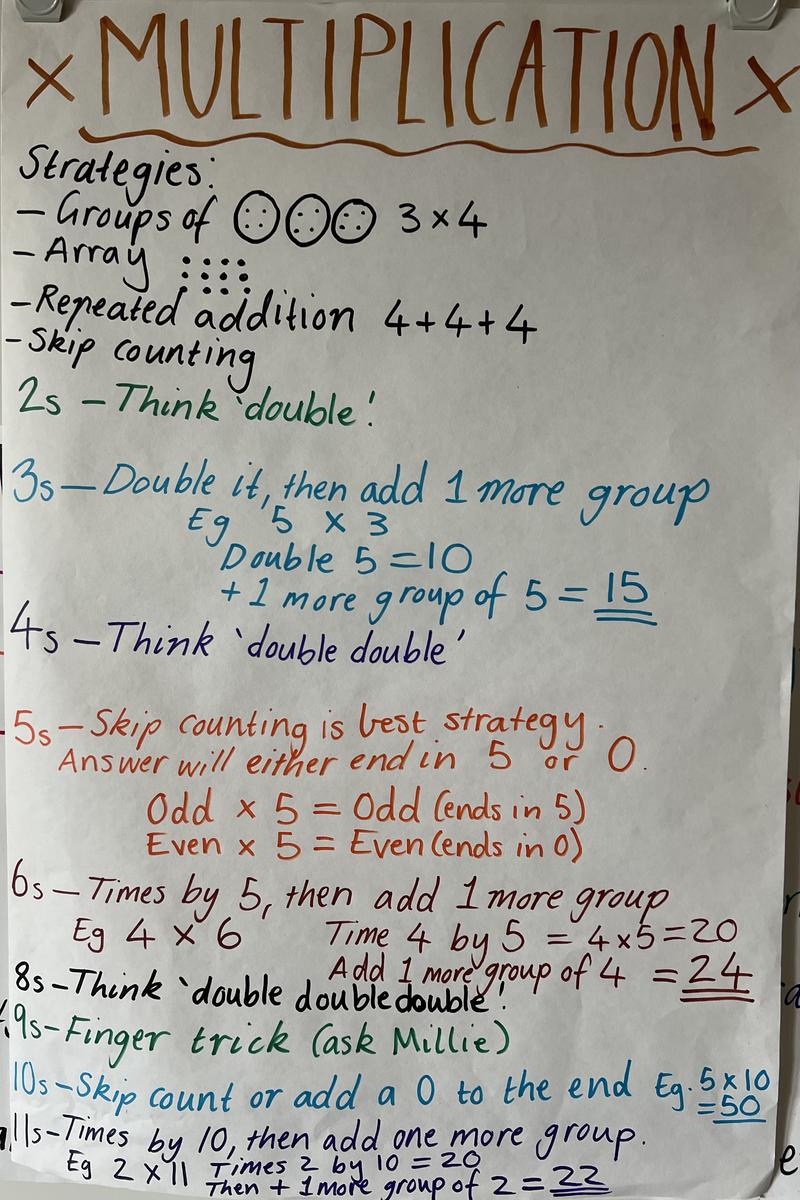 × MULTIPLICATION ×
Strategies:
- Groups of 3 × 4
- Array
- Repeated addition 4+4+4
- Skip counting
2s - Think 'double!
3s - Double it, then add 1 more group
Eg 5 × 3
Double 5 = 10
+ 1 more group of 5 = 15
4s - Think 'double double'
5s - Skip counting is best strategy.
Answer will either end in 5 or 0.
Odd × 5 = Odd (ends in 5)
Even × 5 = Even (ends in 0)
6s - Times by 5, then add 1 more group
Eg 4 × 6 Time 4 by 5 = 4×5=20
Add 1 more group of 4 = 24
8s - Think 'double double double'!
9s - Finger trick (ask Millie)
10s - Skip count or add a 0 to the end Eg. 5×10
=50
11s - Times by 10, then add one more group.
Eg 2 × 11 Times 2 by 10 = 20
Then + 1 more group of 2 = 22